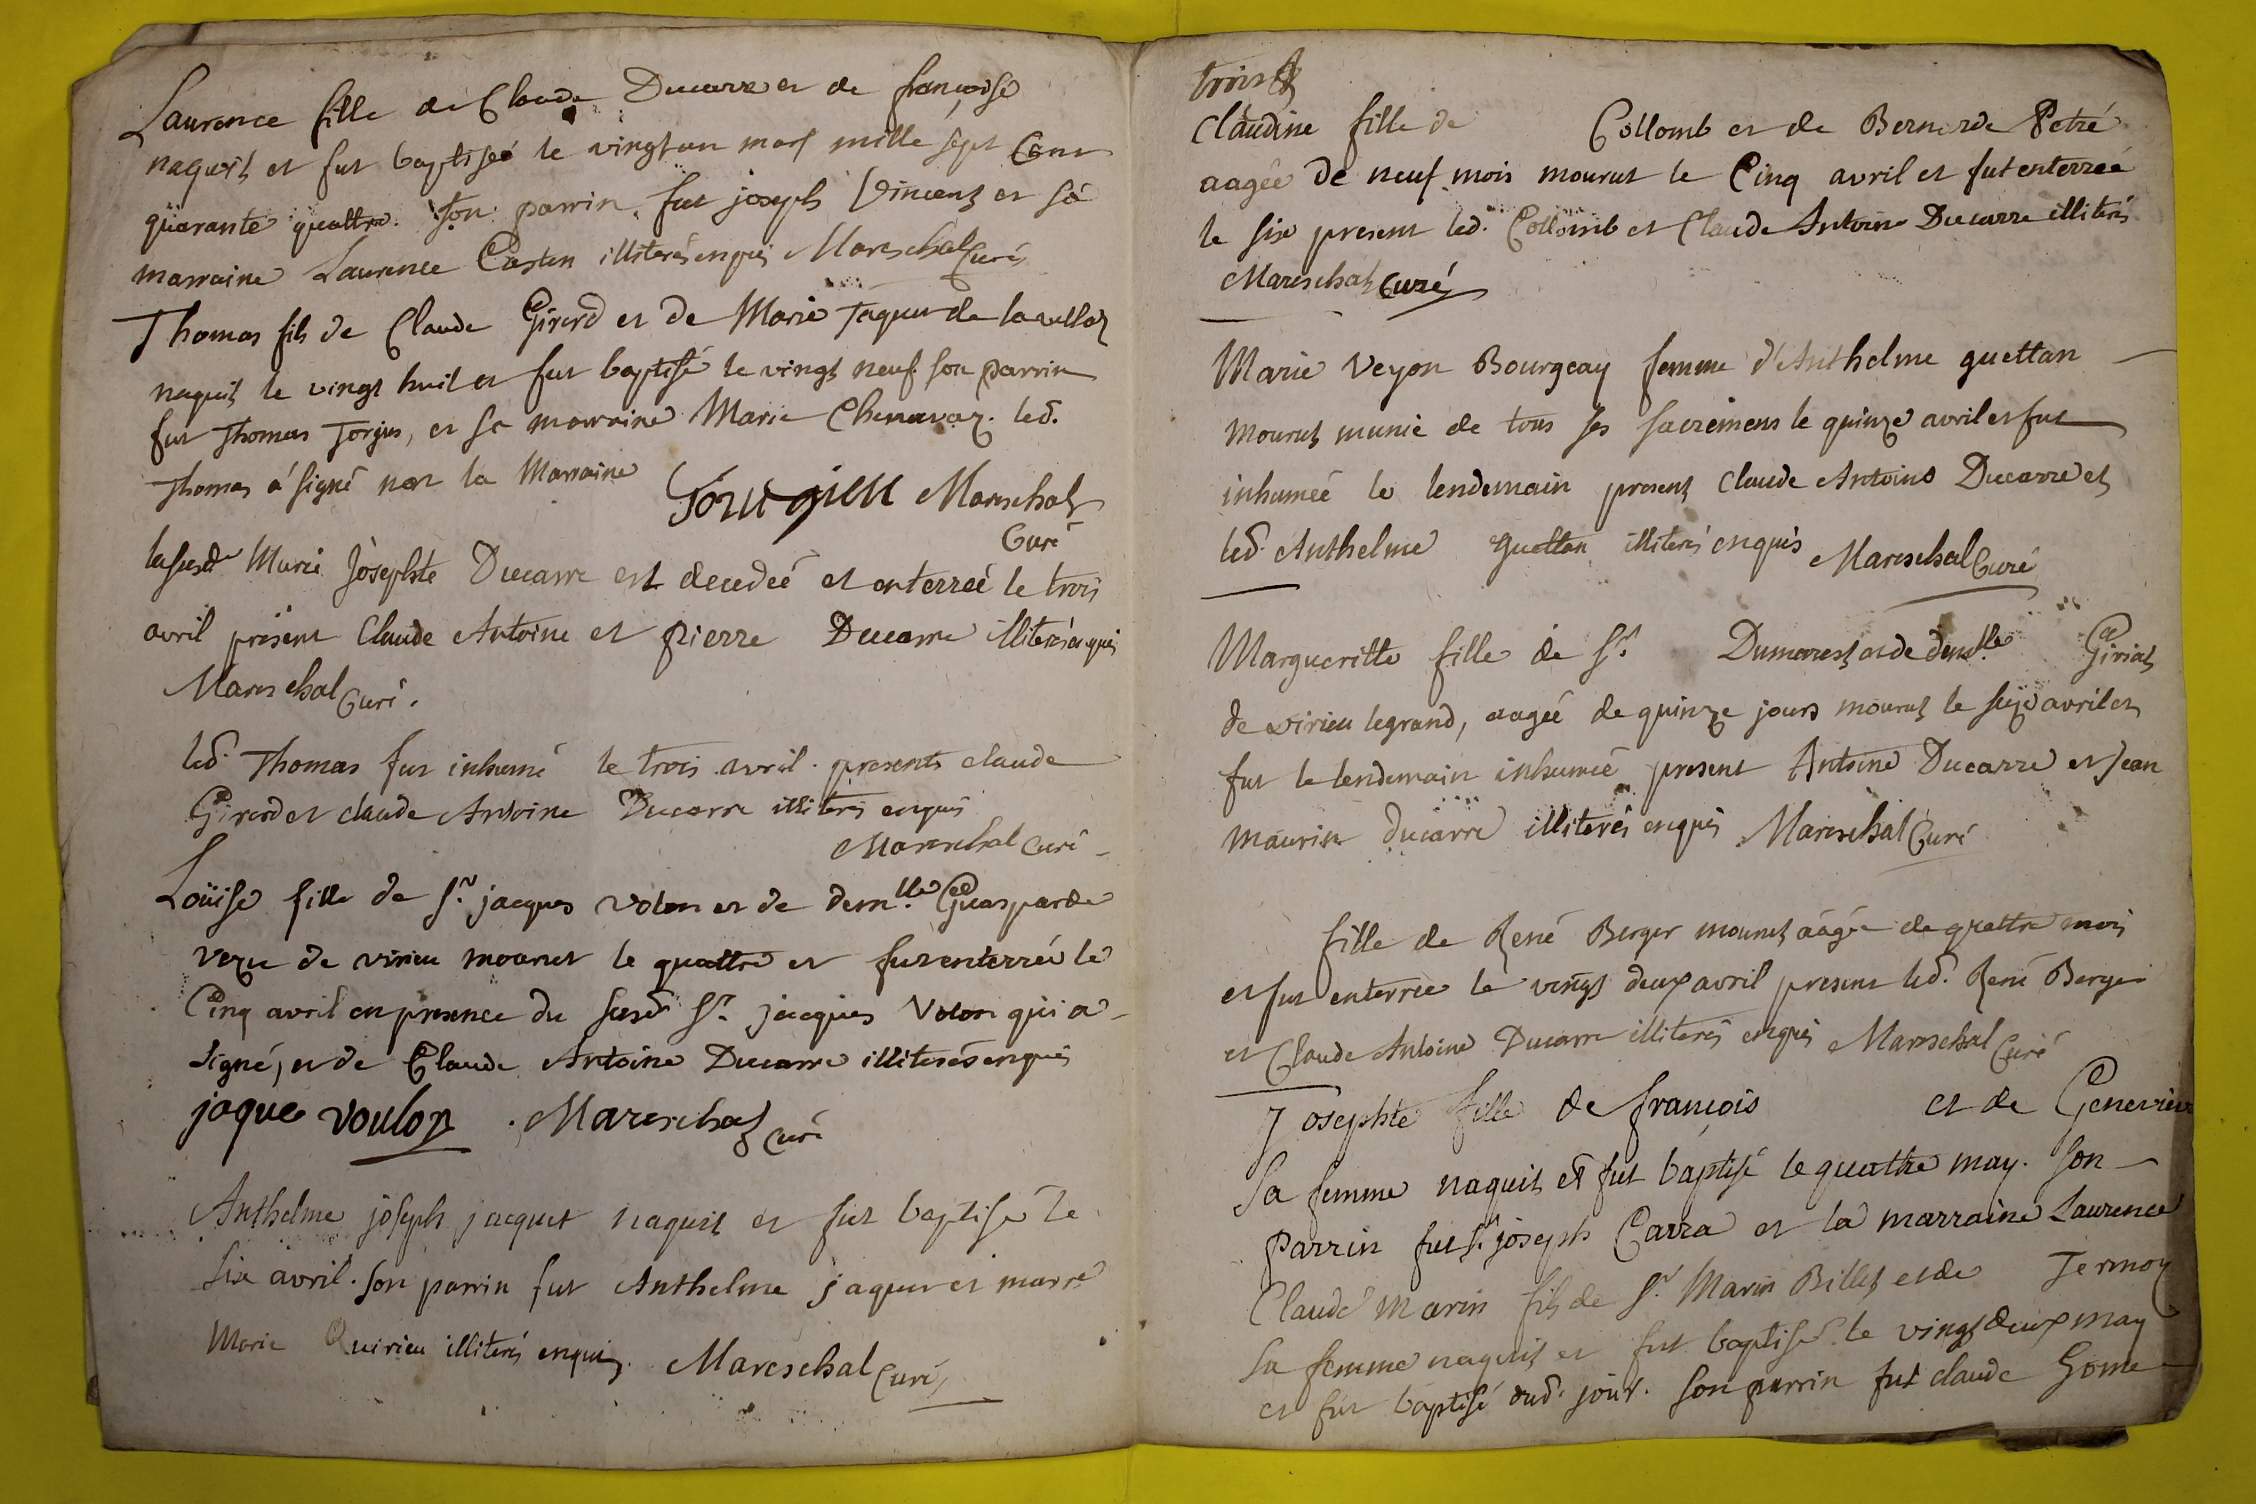 Laurence fille de Claude Ducarre et de françoise
naquit et fut baptiseé le vingt un mars mille sept Cent
quarante quattre. son parrin fut joseph Vincent et sa
marraine Laurence Caston illiterés enquis Mareschal Curé
Thomas fils de Claude Girerd et de Marie Jaquet de
naquit le vingt huit et fut baptisé le vingt neuf son parrin
fut Thomas et sa marraine Marie Chenavaz. led.
Thomas á signé non la Marraine Mareschal
Curé
Marie Josephte Ducarre est decedeé et enterreé le trois
avril présent Claude Antoine et pierre Ducarre illiterés enquis
Mareschal Curé.
led. Thomas fut inhumé le trois avril. presents claude
Girerd et claude Antoine Ducarre illiterés enquis
Mareschal Curé
Loüise fille de Sr. jacques Volon et de demlle. Guasparde
de virieu mourut le quattre et fut enterreé le
Cinq avril en presence du susd Sr. jacques Volon qui a
signé, et de Claude Antoine Ducarre illiterés enquis
jaque voulon. Mareschal curé
Anthelme joseph jacquet naquit et fut baptisé le
six avril. son parrin fut Anthelme jaquet et marre
Marie Quirieu illiterés enquis. Mareschal Curé
trois
Claudine fille de Collomb et de Bernarde Petré
aagée de neuf mois mourut le Cinq avril et fut enterreé
le six present led. Collomb et Claude Antoine Ducarre illiterés
Mareschal Curé
Marie Veyon Bourgeay femme d'Anthelme guettan
mourut munie de tous ses sacremens le quinze avril et fut
inhumeé le lendemain present Claude Antoine Ducarre et
led. Anthelme guettan illiterés enquis Mareschal Curé
Margueritte fille de Sr. Dumarest et de demlle. Giriat
de virieu legrand, aagée de quinze jours mourut le seize avril et
fut le lendemain inhumeé present Antoine Ducarre et Jean
maurin ducarre illiterés enquis Mareschal Curé
fille de René Berger mourut aágée de quattre mois
et fut enterrée le vingt deux avril present led. René Berger
et Claude Antoine Ducarre illiterés enquis Mareschal Curé
Josephte fille de françois et de Genevieve
sa femme naquit et fut baptisé le quattre may. son
parrin fut sr joseph Carra et la marraine Laurence
Claude marin fils de Sr. Marin Billet et de
sa femme naquit et fut baptisé le vingt deux may
et fut baptisé dud. jour. son parrin fut claude Gome